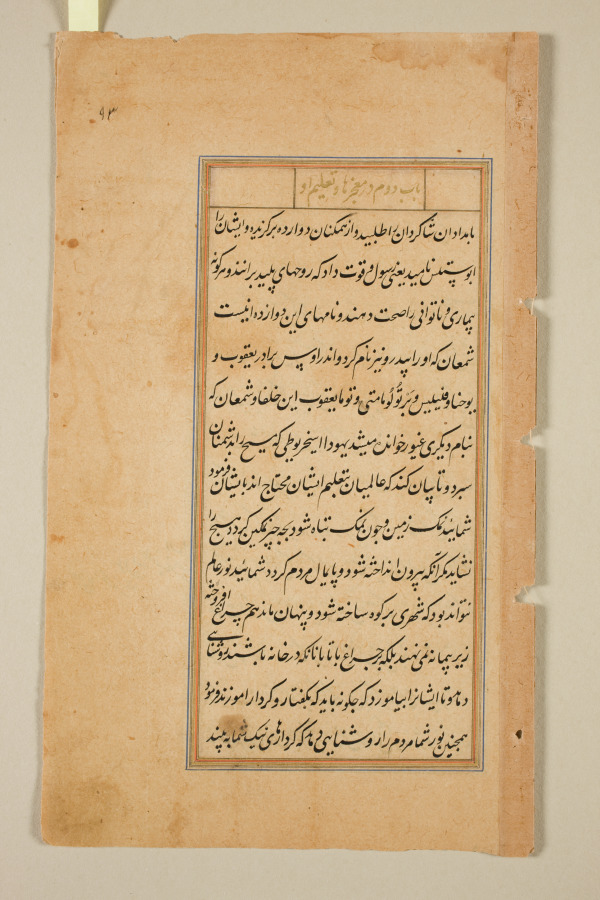 ٩٣
باب دوم در معجزها و تعلیم او
بامدادان شاکردان را طلبید و از همکنان دوازده برکزید و ایشان را
ابوستلس نامید یعنی رسول و قوت داد که روحهای پلید برانند و هرکونه
بیماری و ناتوانی را صحت دهند و نامهای این دوازده اینست
شمعان که او را پیدرو نیز نام کرد و اندراوس برادر یعقوب و
یوحنا و فیلیپس و برتولوما متی و توما یعقوب ابن خلفا و شمعان که
بنام دیکری غیور خوانده میشد یهودا اسخریوطی که مسیح را بدشمنان
سپرد و تا بیان کند که عالمیان بتعلیم ایشان محتاج اند بایشان فرمود
شمایید نمک زمین و چون نمک تباه شود بچه چیز نمکین کردد هیچ را
نشاید مکر آنکه بیرون انداخته شود و پایمال مردم کردد شمایید نور عالم
نتواند بود که شهری بر کوه ساخته شود و پنهان ماند هم چراغ افروخته
زیر پیمانه نمی نهند بلکه بر چراغ با تا بآنانکه در خانه باشند روشناسی
دهد و تا ایشانرا بیاموزد که چکونه باید که بکفتار و کردار آموزند فرمود
همچنین نور شما مردم را روشنایی دهد که کردارهای نیک شما به بینند